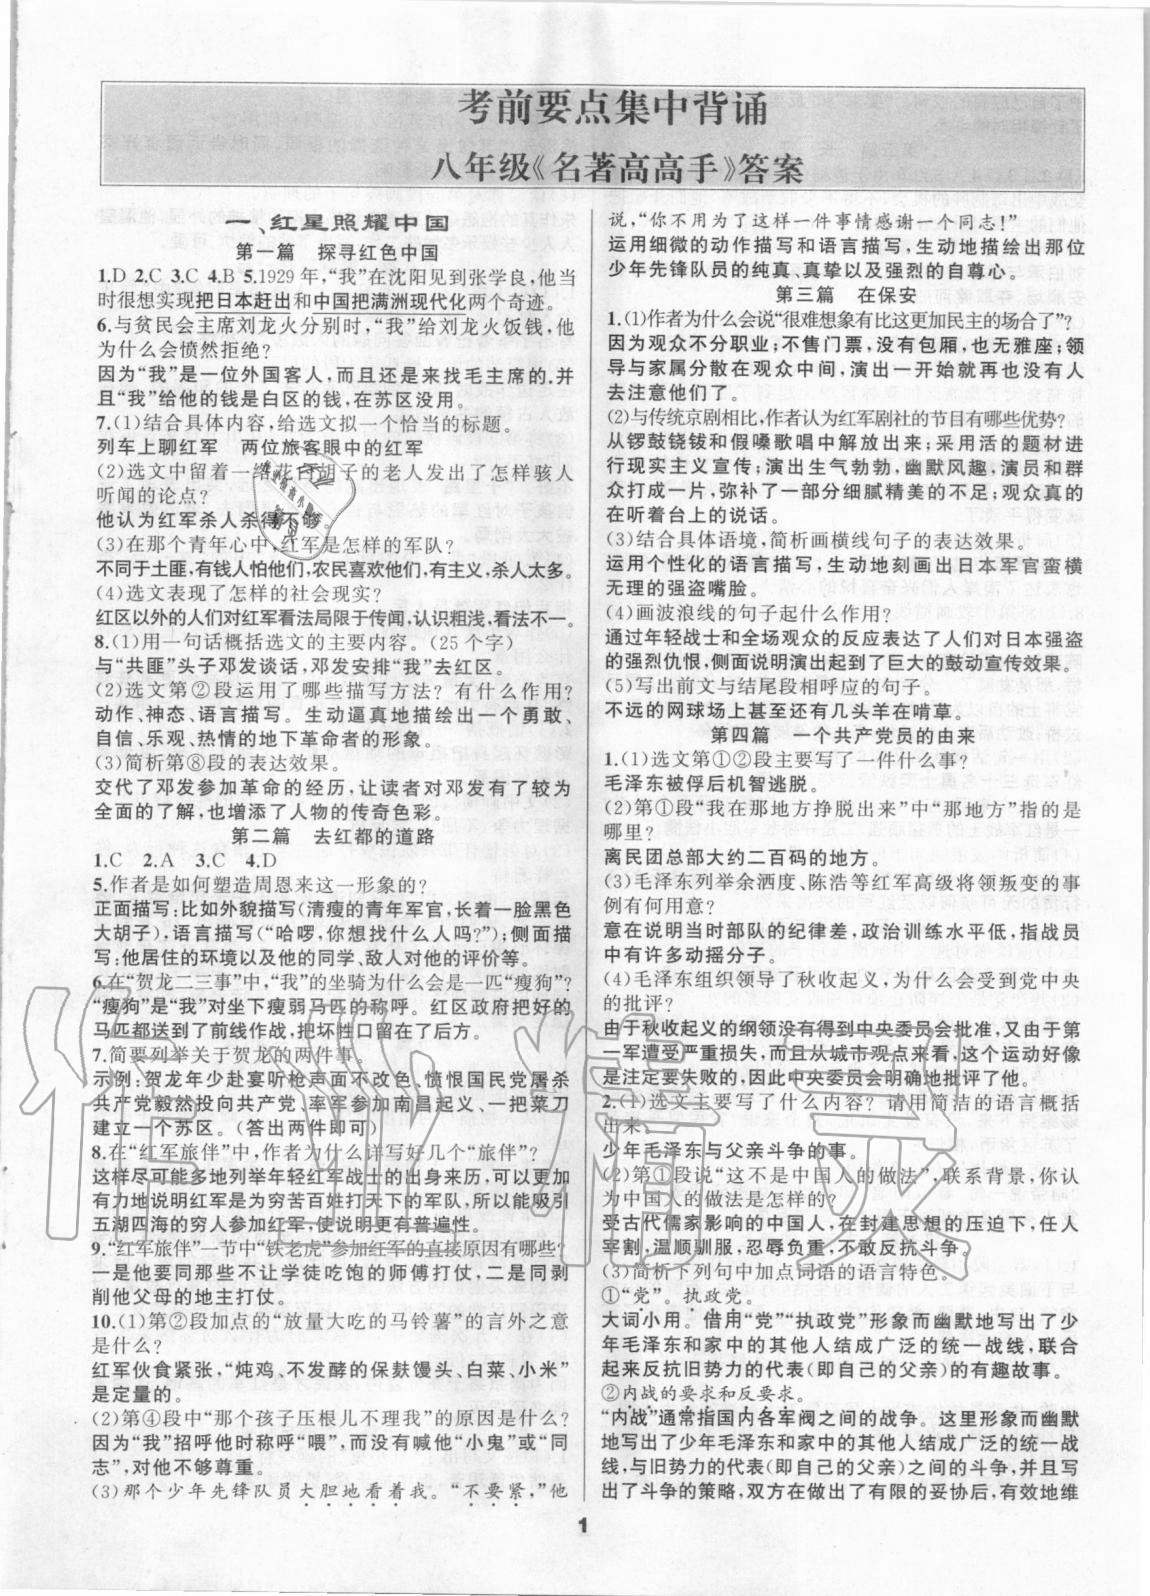 考前要点集中背诵
八年级《名著高高手》答案
一、红星照耀中国
第一篇　探寻红色中国
1.D 2.C 3.C 4.B 5.1929 年，“我”在沈阳见到张学良，他当
时很想实现把日本赶出和中国把满洲现代化两个奇迹。
6.与贫民会主席刘龙火分别时，“我”给刘龙火饭钱，他
为什么会愤然拒绝？
因为“我”是一位外国客人，而且还是来找毛主席的，并
且“我”给他的钱是白区的钱，在苏区没用。
7.(1)结合具体内容，给选文拟一个恰当的标题。
列车上聊红军　两位旅客眼中的红军
(2)选文中留着一绺花白胡子的老人发出了怎样骇人
听闻的论点？
他认为红军杀人杀得不够。
(3)在那个青年心中，红军是怎样的军队？
不同于土匪，有钱人怕他们，农民喜欢他们，有主义，杀人太多。
(4)选文表现了怎样的社会现实？
红区以外的人们对红军看法局限于传闻，认识粗浅，看法不一。
8.(1)用一句话概括选文的主要内容。(25 个字)
与“共匪”头子邓发谈话，邓发安排“我”去红区。
(2)选文第②段运用了哪些描写方法？有什么作用？
动作、神态、语言描写。生动逼真地描绘出一个勇敢、
自信、乐观、热情的地下革命者的形象。
(3)简析第⑧段的表达效果。
交代了邓发参加革命的经历，让读者对邓发有了较为
全面的了解，也增添了人物的传奇色彩。
第二篇　去红都的道路
1.C　2.A　3.C　4.D
5.作者是如何塑造周恩来这一形象的？
正面描写：比如外貌描写(清瘦的青年军官，长着一脸黑色
大胡子)，语言描写(“哈啰，你想找什么人吗？”)；侧面描
写：他居住的环境以及他的同学、敌人对他的评价等。
6.在“贺龙二三事”中，“我”的坐骑为什么会是一匹“瘦狗”？
“瘦狗”是“我”对坐下瘦弱马匹的称呼。红区政府把好的
马匹都送到了前线作战，把坏牲口留在了后方。
7.简要列举关于贺龙的两件事。
示例：贺龙年少赴宴听枪声面不改色、愤恨国民党屠杀
共产党毅然投向共产党、率军参加南昌起义、一把菜刀
建立一个苏区。(答出两件即可)
8.在“红军旅伴”中，作者为什么详写好几个“旅伴”？
这样尽可能多地列举年轻红军战士的出身来历，可以更加
有力地说明红军是为穷苦百姓打天下的军队，所以能吸引
五湖四海的穷人参加红军，使说明更有普遍性。
9.“红军旅伴”一节中“铁老虎”参加红军的直接原因有哪些？
一是他要同那些不让学徒吃饱的师傅打仗，二是同剥
削他父母的地主打仗。
10.(1)第②段加点的“放量大吃的马铃薯”的言外之意
是什么？
红军伙食紧张，“炖鸡、不发酵的保麸馒头、白菜、小米”
是定量的。
(2)第④段中“那个孩子压根儿不理我”的原因是什么？
因为“我”招呼他时称呼“喂”，而没有喊他“小鬼”或“同
志”，对他不够尊重。
(3)那个少年先锋队员大胆地看着我。“不要紧，”他
说，“你不用为了这样一件事情感谢一个同志！”
运用细微的动作描写和语言描写，生动地描绘出那位
少年先锋队员的纯真、真挚以及强烈的自尊心。
第三篇　在保安
1.(1)作者为什么会说“很难想象有比这更加民主的场合了”？
因为观众不分职业；不售门票，没有包厢，也无雅座；领
导与家属分散在观众中间，演出一开始就再也没有人
去注意他们了。
(2)与传统京剧相比，作者认为红军剧社的节目有哪些优势？
从锣鼓铙钹和假嗓歌唱中解放出来；采用活的题材进
行现实主义宣传；演出生气勃勃，幽默风趣，演员和群
众打成一片，弥补了一部分细腻精美的不足；观众真的
在听着台上的说话。
(3)结合具体语境，简析画横线句子的表达效果。
运用个性化的语言描写，生动地刻画出日本军官蛮横
无理的强盗嘴脸。
(4)画波浪线的句子起什么作用？
通过年轻战士和全场观众的反应表达了人们对日本强盗
的强烈仇恨，侧面说明演出起到了巨大的鼓动宣传效果。
(5)写出前文与结尾段相呼应的句子。
不远的网球场上甚至还有几头羊在啃草。
第四篇　一个共产党员的由来
1.(1)选文第①②段主要写了一件什么事？
毛泽东被俘后机智逃脱。
(2)第①段“我在那地方挣脱出来”中“那地方”指的是
哪里？
离民团总部大约二百码的地方。
(3)毛泽东列举余洒度、陈浩等红军高级将领叛变的事
例有何用意？
意在说明当时部队的纪律差，政治训练水平低，指战员
中有许多动摇分子。
(4)毛泽东组织领导了秋收起义，为什么会受到党中央
的批评？
由于秋收起义的纲领没有得到中央委员会批准，又由于第
一军遭受严重损失，而且从城市观点来看，这个运动好像
是注定要失败的，因此中央委员会明确地批评了他。
2.(1)选文主要写了什么内容？请用简洁的语言概括
出来。
少年毛泽东与父亲斗争的事。
(2)第①段说“这不是中国人的做法”，联系背景，你认
为中国人的做法是怎样的？
受古代儒家影响的中国人，在封建思想的压迫下，任人
宰割，温顺驯服，忍辱负重，不敢反抗斗争。
(3)简析下列句中加点词语的语言特色。
①“党”。执政党。
大词小用。借用“党”“执政党”形象而幽默地写出了少
年毛泽东和家中的其他人结成广泛的统一战线，联合
起来反抗旧势力的代表(即自己的父亲)的有趣故事。
②内战的要求和反要求。
“内战”通常指国内各军阀之间的战争。这里形象而幽默
地写出了少年毛泽东和家中的其他人结成广泛的统一战
线，与旧势力的代表(即自己的父亲)之间的斗争，并且写
出了斗争的策略，双方在做出了有限的妥协后，有效地维
1
作业精灵